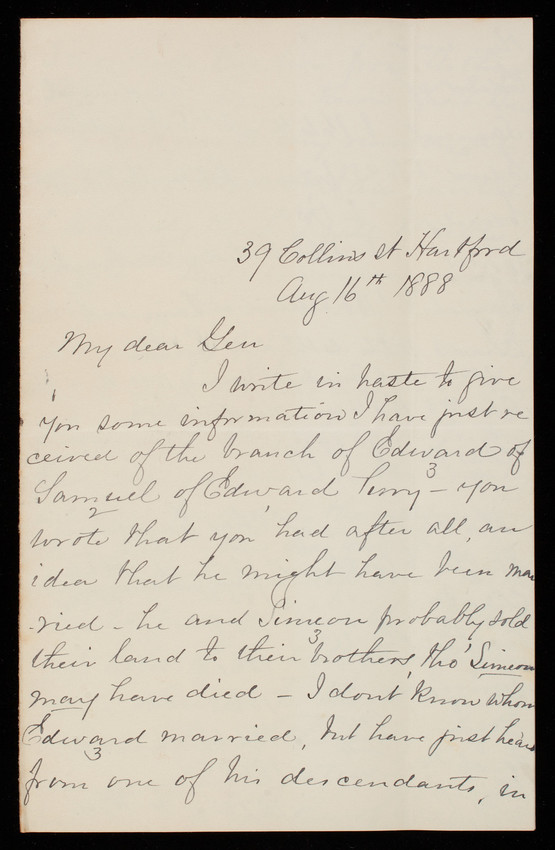 39 Collins st Hartford
Aug 16th 1888
My dear Gen
I write in haste to give
you some information I have just re
ceived of the branch of Edward 3 of
Samuel 2 of Edward 1 Perry - you
wrote that you had after all, an
idea that he might have been mar
ried - he and Simeon 3 probably sold
their land to their brothers, tho' Simeon
may have died - I don't know whom
Edward 3 married, but have just heard
from one of his descendants, in